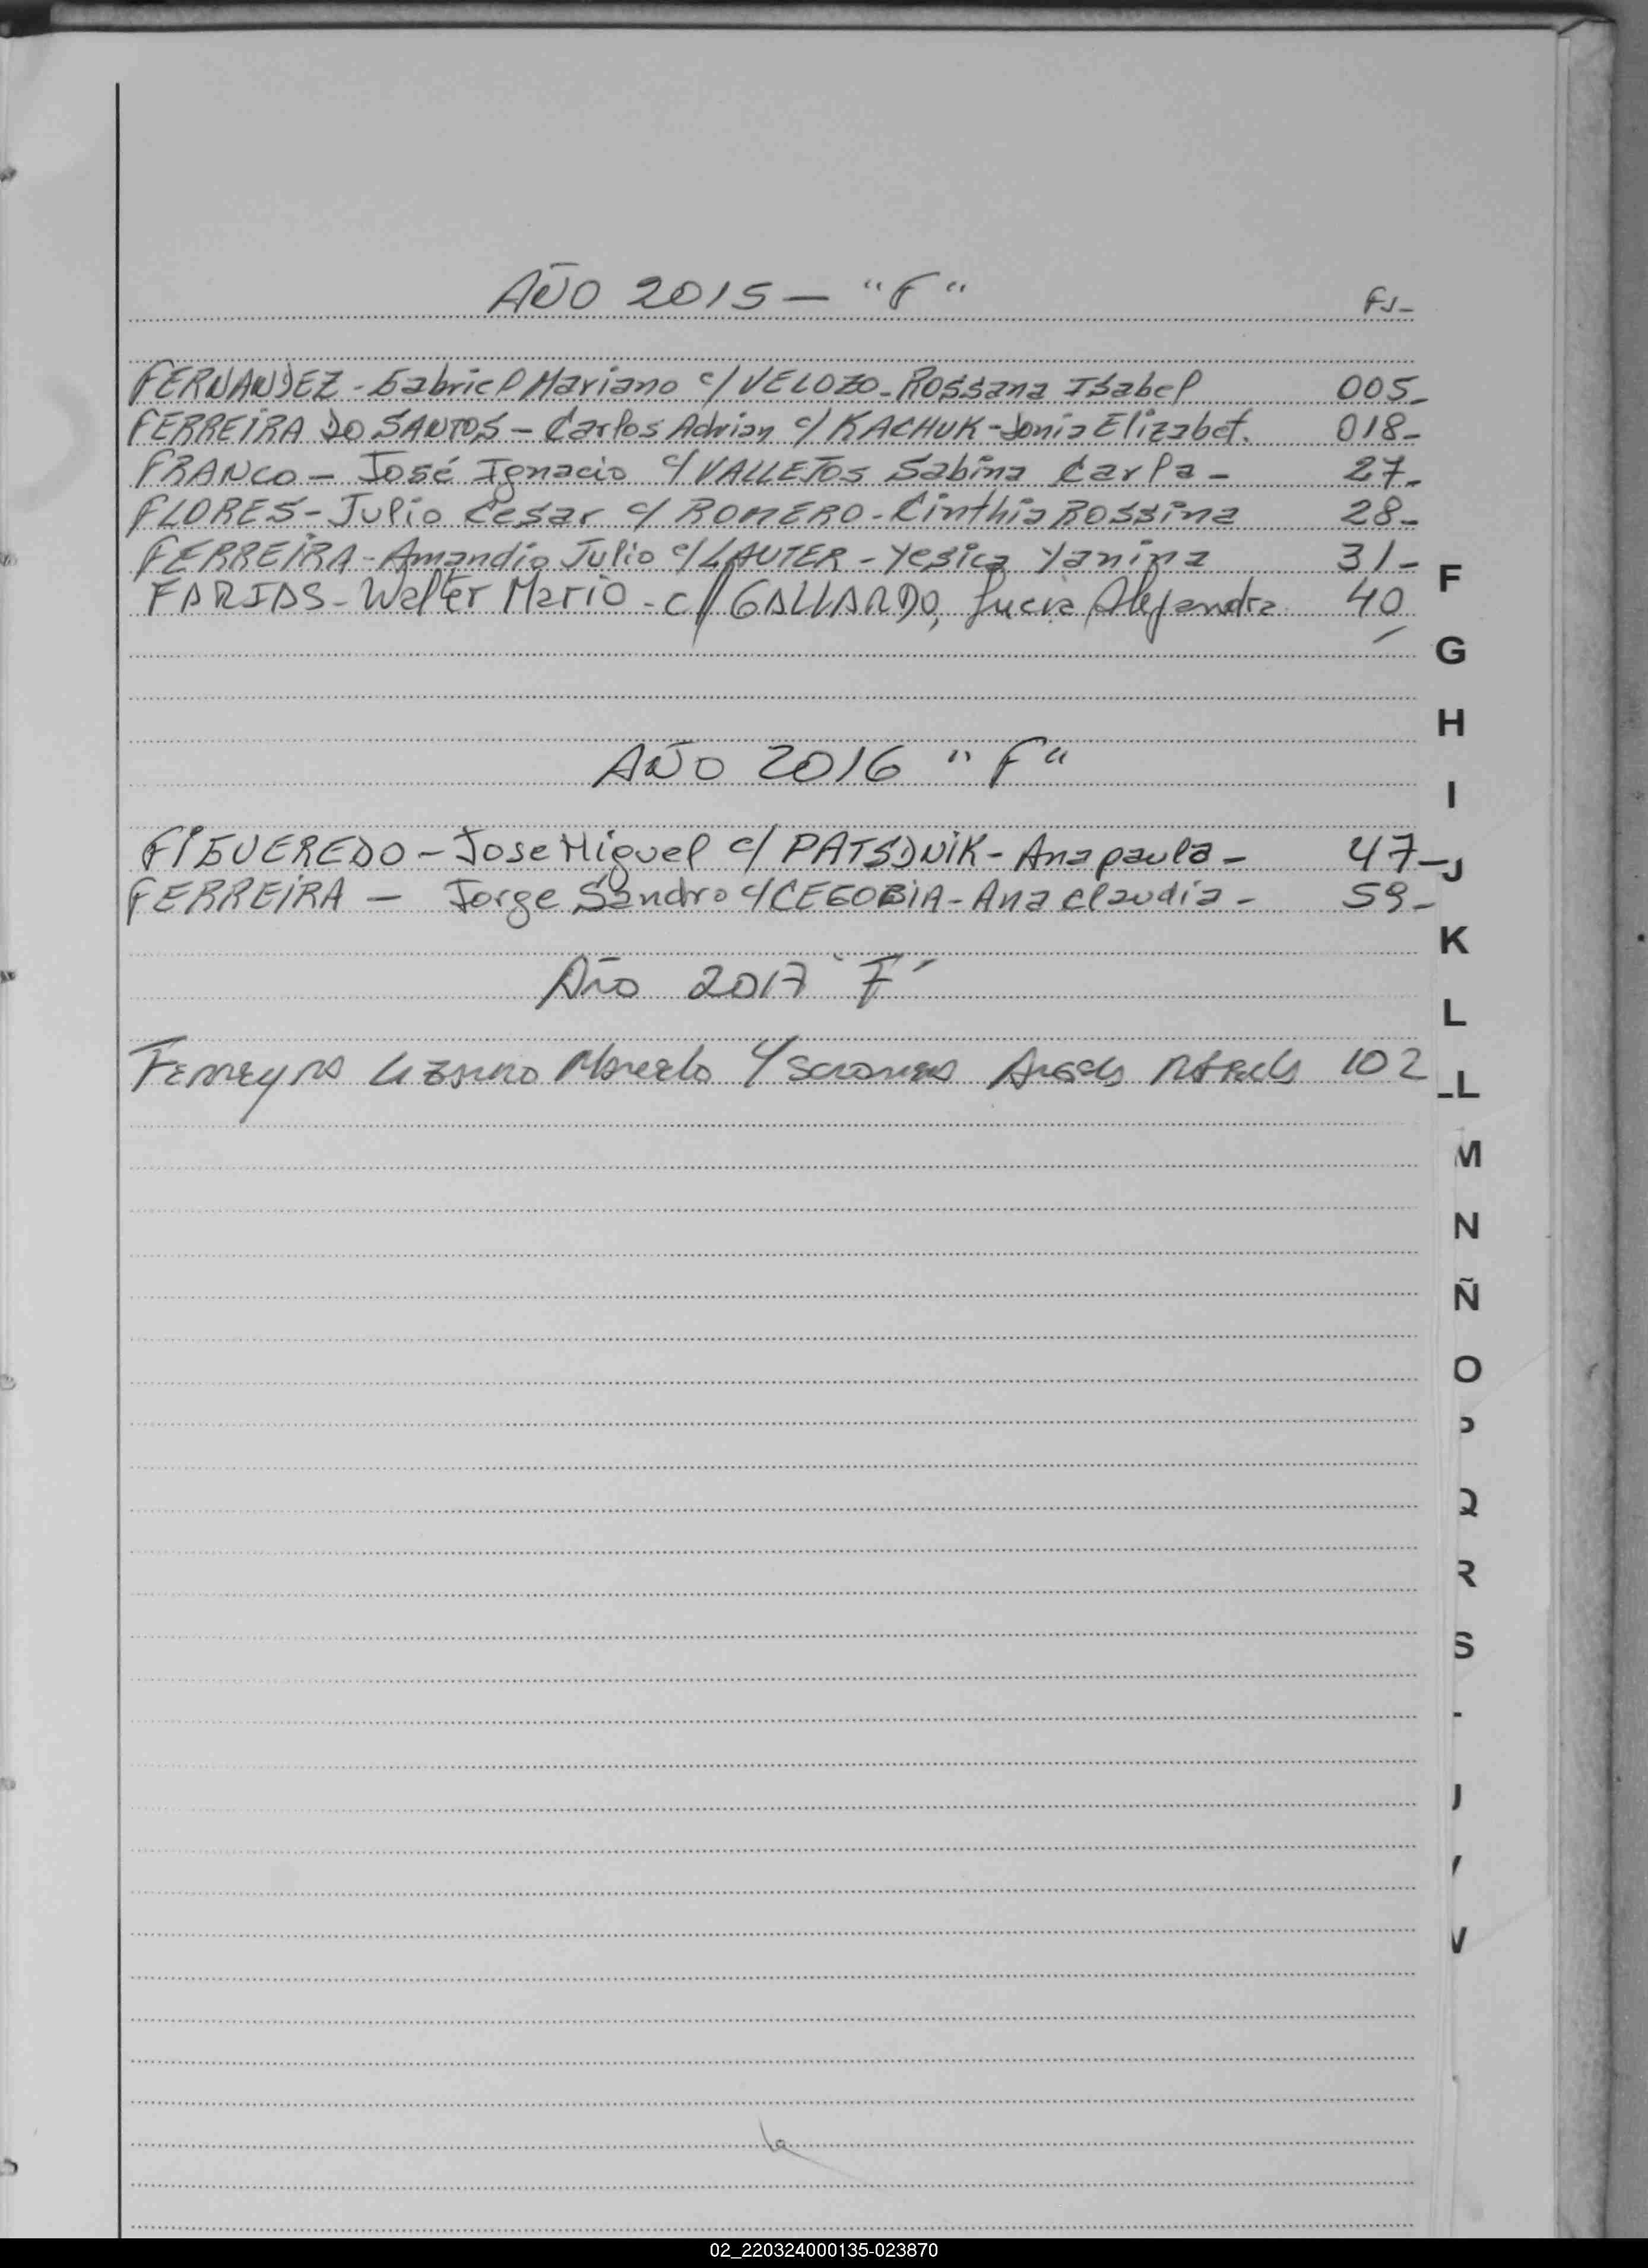 AÑO 2015 — "F" FS-
FERNANDEZ - Gabriel Mariano c/ VELOZO - Rossana Isabel 005-
FERREIRA DO SANTOS - Carlos Adrian c/ KACHUK - Sonia Elizabet. 018-
FRANCO - José Ignacio c/ VALLEJOS Sabina Carla - 27-
FLORES - Julio Cesar c/ ROMERO - Cinthia Rossina 28-
FERREIRA - Amandio Julio c/ LAUTER - Yesica Yanina 31-
FARIAS - Walter Mario - c// GALLARDO, Lucia Alejandra 40
AÑO 2016 "F"
FIGUEREDO - Jose Miguel c/ PATSDNIK - Ana paula - 47-
FERREIRA - Jorge Sandro c/ CEGOBIA - Ana claudia - 59-
Año 2017 "F"
Ferreyra Marcelo c/ 102
F
G
H
I
J
K
L
LL
M
N
Ñ
O
P
Q
R
S
02_220324000135-023870